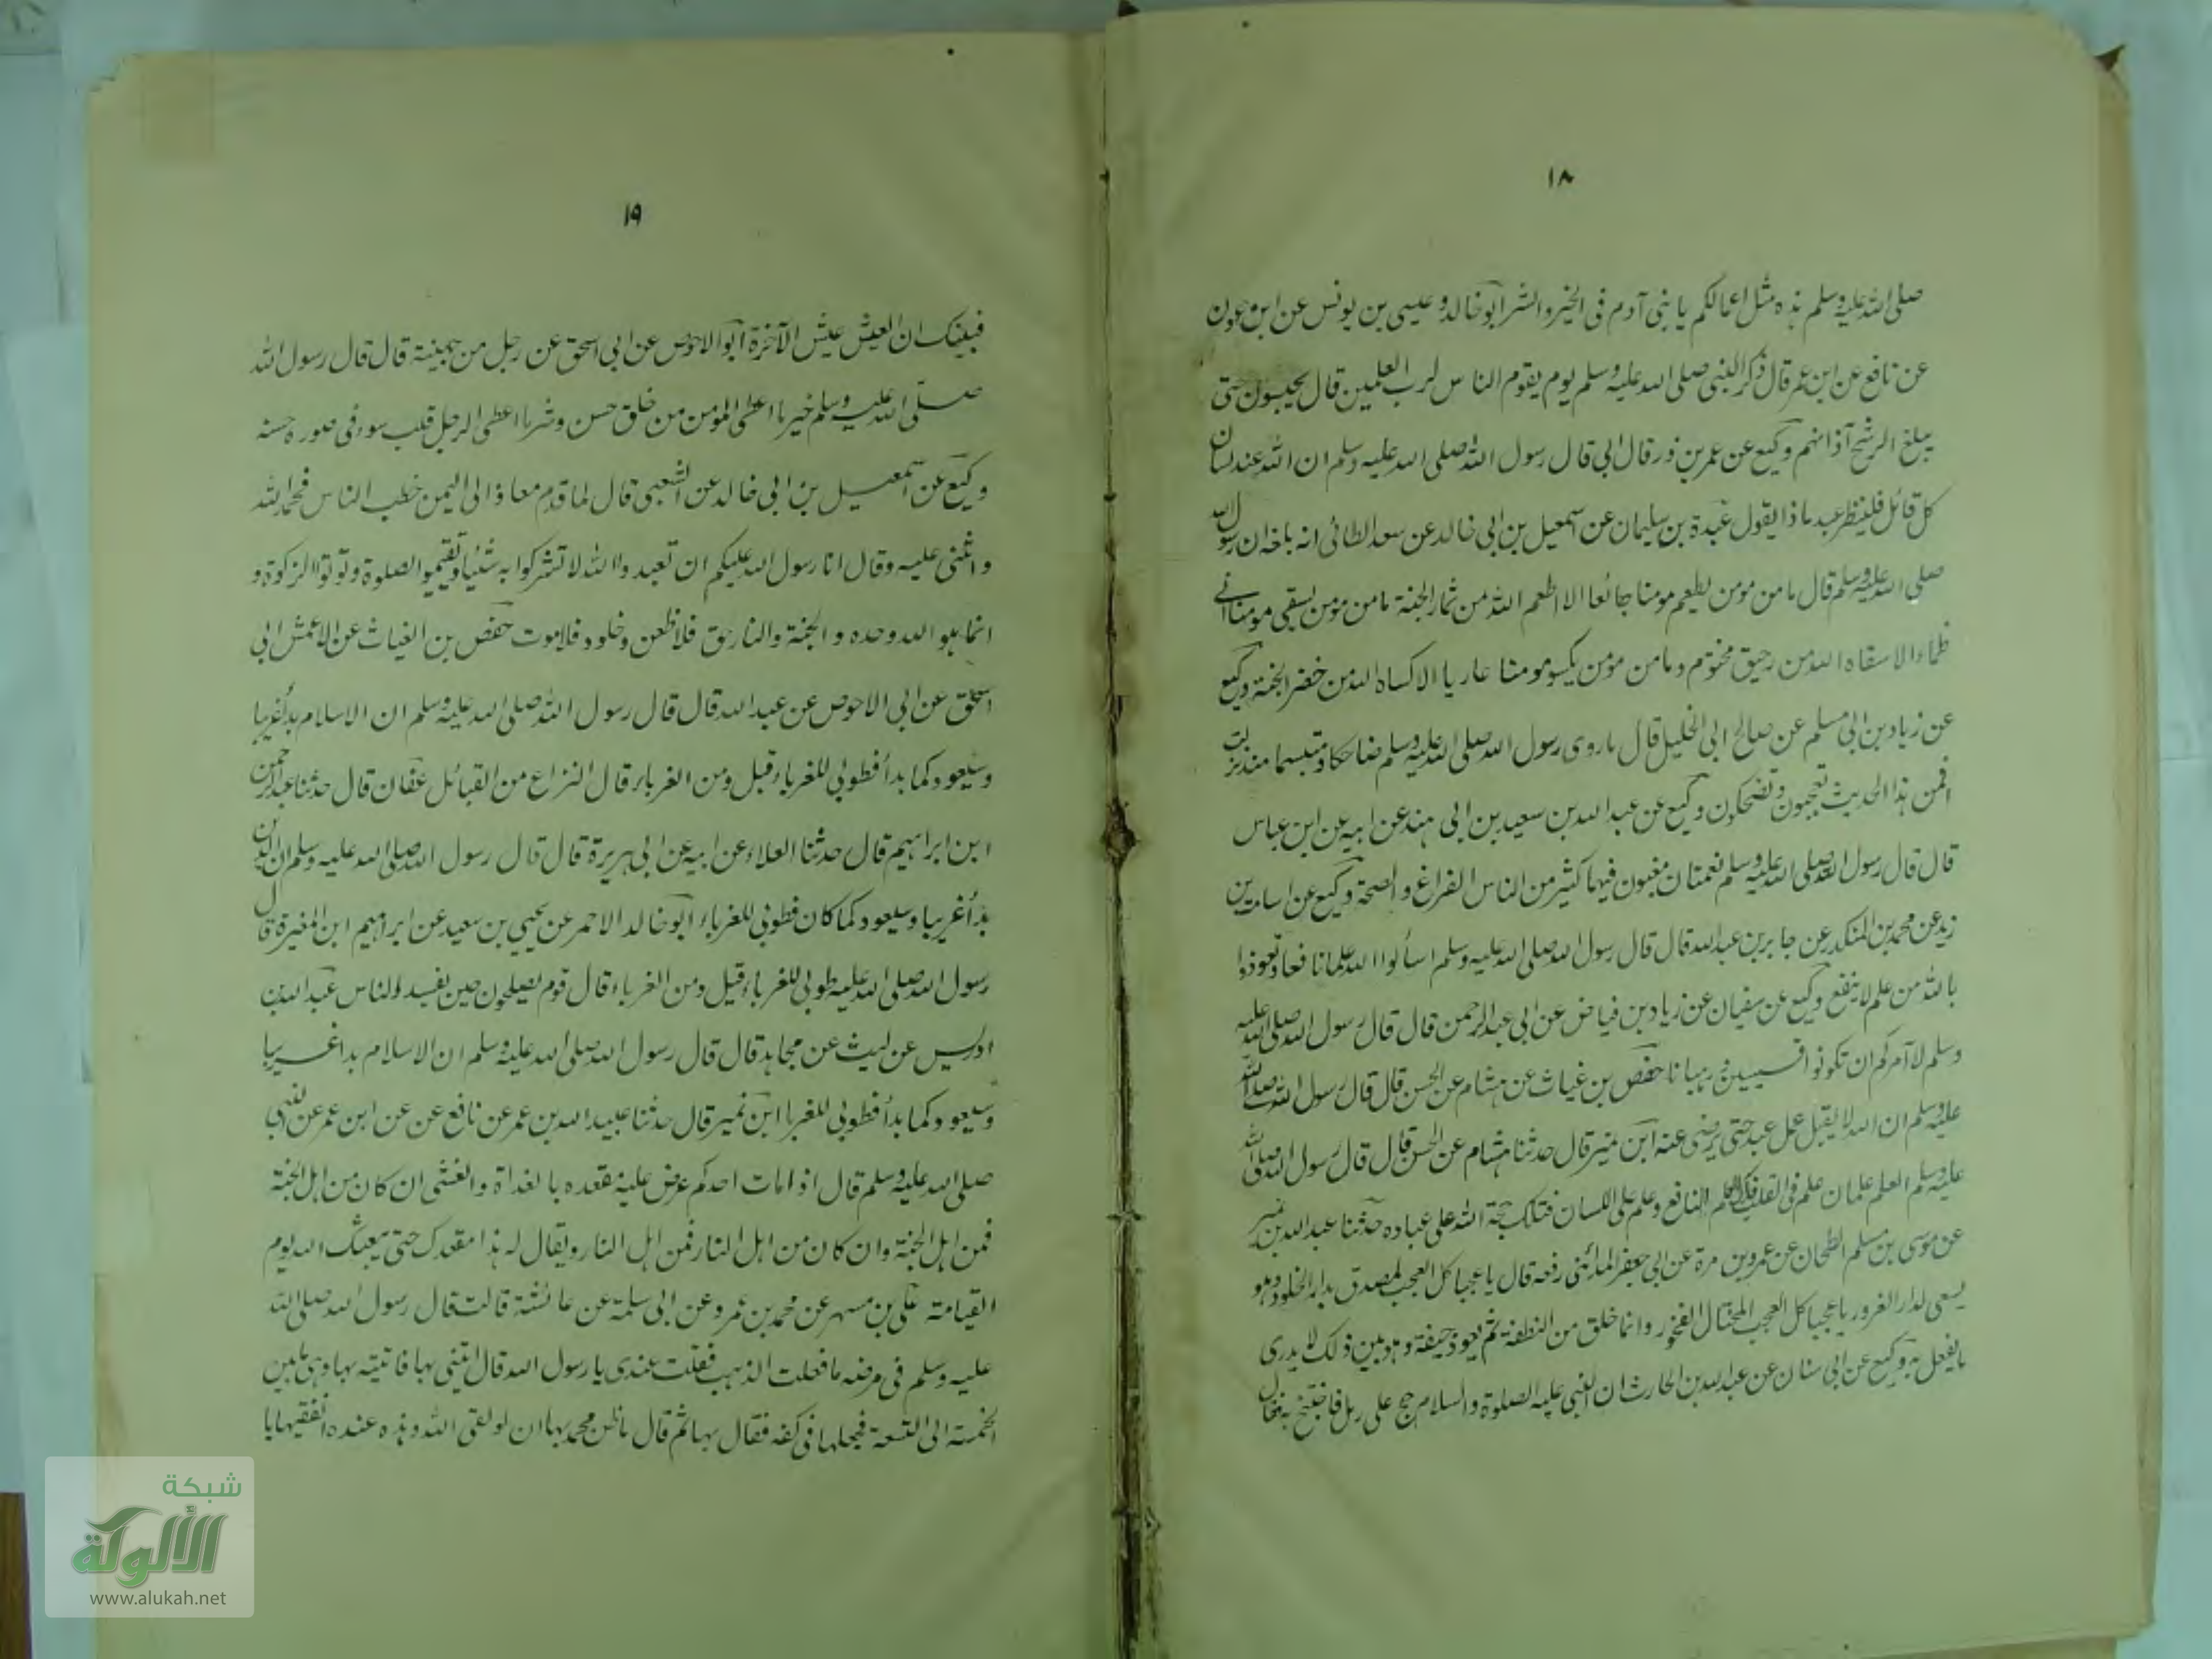 ١٨
صلى الله عليه وسلم هذه مثل اعمالكم يا بنى آدم فى الخير والشر ابو خالد وعيسى بن يونس عن ابن عون
عن نافع عن ابن عمر قال ذكر النبى صلى الله عليه وسلم يوم يقوم الناس لرب العلمين قال يحبسون حتى
يبلغ الرشح آذانهم وكيع عن عمر بن ذر قال ابى قال رسول الله صلى الله عليه وسلم ان الله عند لسان
كل قائل فلينظر عبد ماذا يقول عبدة بن سليمان عن اسمعيل بن ابى خالد عن سعد الطائى انه بلغه ان رسول الله
صلى الله عليه وسلم قال ما من مومن يطعم مومنا جائعا الا اطعمه الله من ثمار الجنة ما من مومن يسقى مومنا على
ظماء الا سقاه الله من رحيق مختوم وما من مؤمن يكسو مومنا عاريا الا كساه الله من خضر الجنة وكيع
عن زياد بن ابى مسلم عن صالح ابى الخليل قال ما روى رسول الله صلى الله عليه وسلم ضاحكا ومتبسما منذ نزلت
افمن هذا الحديث تعجبون وتضحكون وكيع عن عبد الله بن سعيد بن ابى هند عن ابيه عن ابن عباس
قال قال رسول الله صلى الله عليه وسلم نعمتان مغبون فيهما كثير من الناس الفراغ والصحة وكيع عن اسامة بن
زيد عن محمد بن المنكدر عن جابر بن عبد الله قال قال رسول الله صلى الله عليه وسلم اسألوا الله علما نافعا وتعوذوا
بالله من علم لا ينفع وكيع عن سفيان عن زياد بن فياض عن ابى عبد الرحمن قال قال رسول الله صلى الله عليه
وسلم لا آمركم ان تكونوا قسيسين رهبانا حفص بن غياث عن هشام عن الحسن قال قال رسول الله صلى الله
عليه وسلم ان الله لا يقبل عمل عبد حتى يرضى عنه ابن نمير قال حدثنا هشام عن الحسن قال قال رسول الله صلى الله
عليه وسلم العلم علمان علم فى القلب فذلك العلم النافع وعلم على اللسان فتلك حجة الله على عباده حدثنا عبد الله بن نمير
عن موسى بن مسلم الطحان عن عمرو بن مرة عن ابى جعفر المدائنى رفعه قال يا عجبا كل العجب لمصدق بدار الخلود وهو
يسعى لدار الغرور يا عجبا كل العجب المختال الفخور وانما خلق من النطفة ثم يعود جيفة وهو بين ذلك لا يدرى
ما يفعل به وكيع عن ابى سنان عن عبد الله بن الحارث ان النبى عليه الصلوة والسلام حج على رحل فاجتنح به فقال
١٩
لبيك ان العيش عيش الآخرة ابو الاحوص عن ابى اسحق عن رجل من جهينة قال قال رسول الله
صلى الله عليه وسلم خير ما اعطى المؤمن من خلق حسن وشر ما اعطى الرجل قلب سوء فى صورة حسنه
وكيع عن اسمعيل بن ابى خالد عن الشعبى قال لما قدم معاذ الى اليمن خطب الناس فحمد الله
واثنى عليه وقال انا رسول الله عليكم ان تعبدوا الله لا تشركوا به شيئا وتقيموا الصلوة وتوتوا الزكوة و
انما هو الله وحده والجنة والنار حق فلا ظعن وخلود فلا موت حفص بن الغياث عن الاعمش ابى
اسحق عن ابى الاحوص عن عبد الله قال قال رسول الله صلى الله عليه وسلم ان الاسلام بدأ غريبا
وسيعود كما بدأ فطوبى للغرباء قيل ومن الغرباء قال النزاع من القبائل عفان قال حدثنا عبد الرحمن
ابن ابراهيم قال حدثنا العلاء عن ابيه عن ابى هريرة قال قال رسول الله صلى الله عليه وسلم ان الدين
بدأ غريبا وسيعود كما كان فطوبى للغرباء ابو خالد الاحمر عن يحيى بن سعيد عن ابراهيم ابن المغيرة قال
رسول الله صلى الله عليه طوبى للغرباء قيل ومن الغرباء قال قوم يصلحون حين يفسد الناس عبد الله بن
ادريس عن ليث عن مجاهد قال قال رسول الله صلى الله عليه وسلم ان الاسلام بدا غريبا
وسيعود كما بدأ فطوبى للغربا ابن نمير قال حدثنا عبيد الله بن عمر عن نافع عن عن ابن عمر عن النبى
صلى الله عليه وسلم قال اذا مات احدكم عرض عليه مقعده بالغداة والعشى ان كان من اهل الجنة
فمن اهل الجنة وان كان من اهل النار فمن اهل النار ويقال له هذا مقعدك حتى يبعثك الله يوم
القيامة على بن مسهر عن محمد بن عمرو عن ابى سلمة عن عائشة قالت قال رسول الله صلى الله
عليه وسلم فى مرضه ما فعلت الذهب فقلت عندى يا رسول الله قال ائتنى بها فاتيته بها وهى ما بين
الخمسة الى التسعة فجعلها فى كفه فقال بها ثم قال ما ظن محمد بها ان لو لقى الله وهذه عنده انفقيها يا
شبكة
الألوكة
www.alukah.net